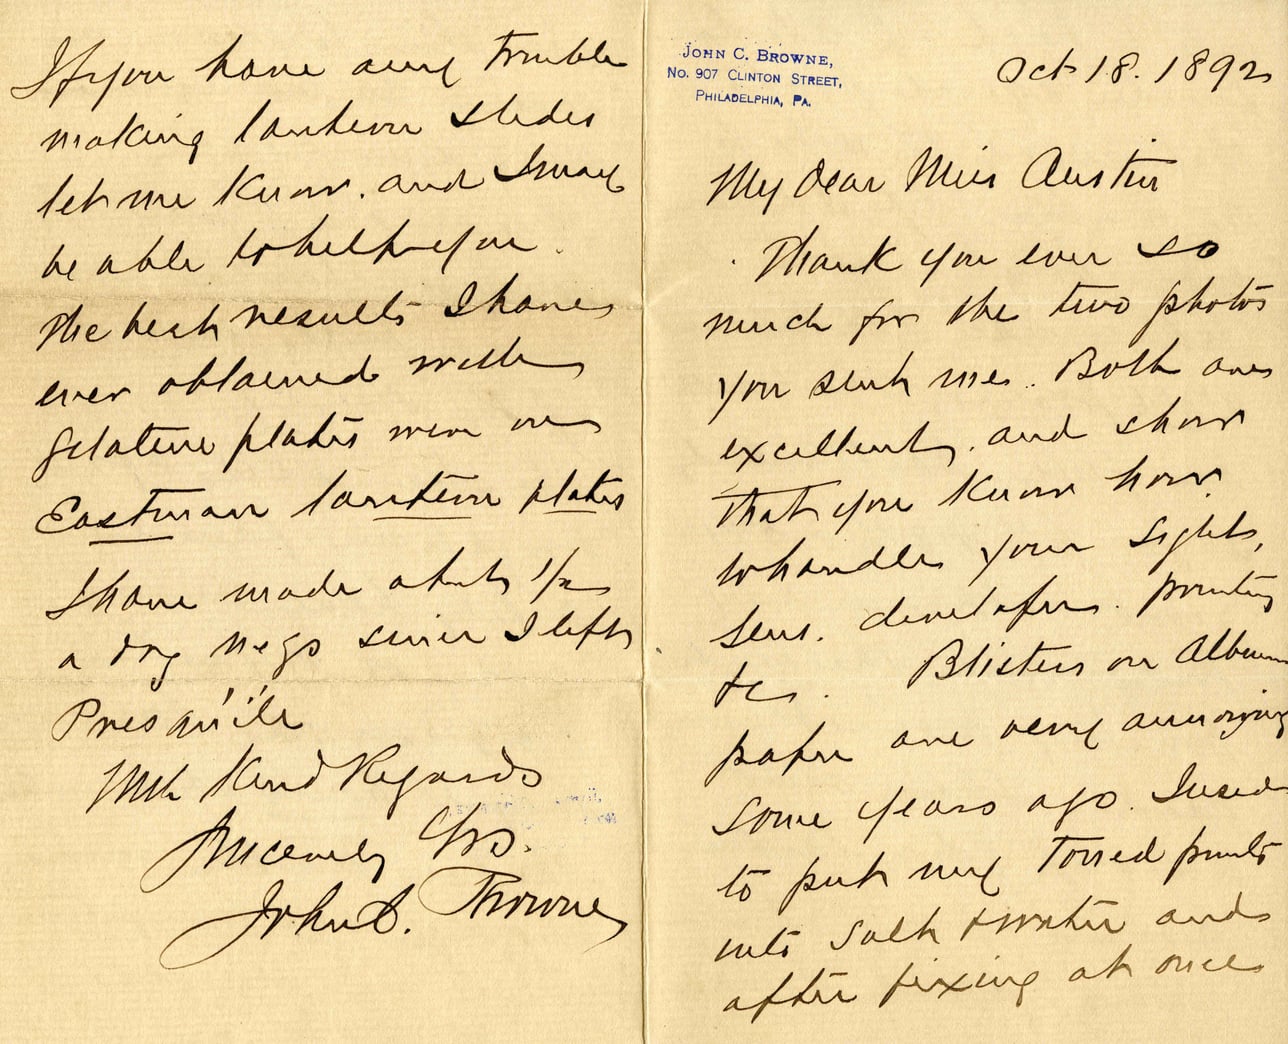 JOHN C. BROWNE,
NO. 907 CLINTON STREET,
PHILADELPHIA, PA.
Oct 18. 1892
My dear Miss Austin
Thank you ever so
much for the two photos
you sent me. Both are
excellent, and show
that you know how
to handle your lights,
lens. developer. printing
&c. Blisters on Album
paper are very annoying
some years ago. I used
to put my toned prints
into salt & water and
after fixing at once
If you have any trouble
making lantern slides
let me know. and I may
be able to help you.
The best results I have
ever obtained with
gelatine plates were on
Eastman lantern plates
I have made about 1/2
a doz negs since I left
Presqu'ile
With Kind Regards
Sincerely Yrs.
John C. Browne